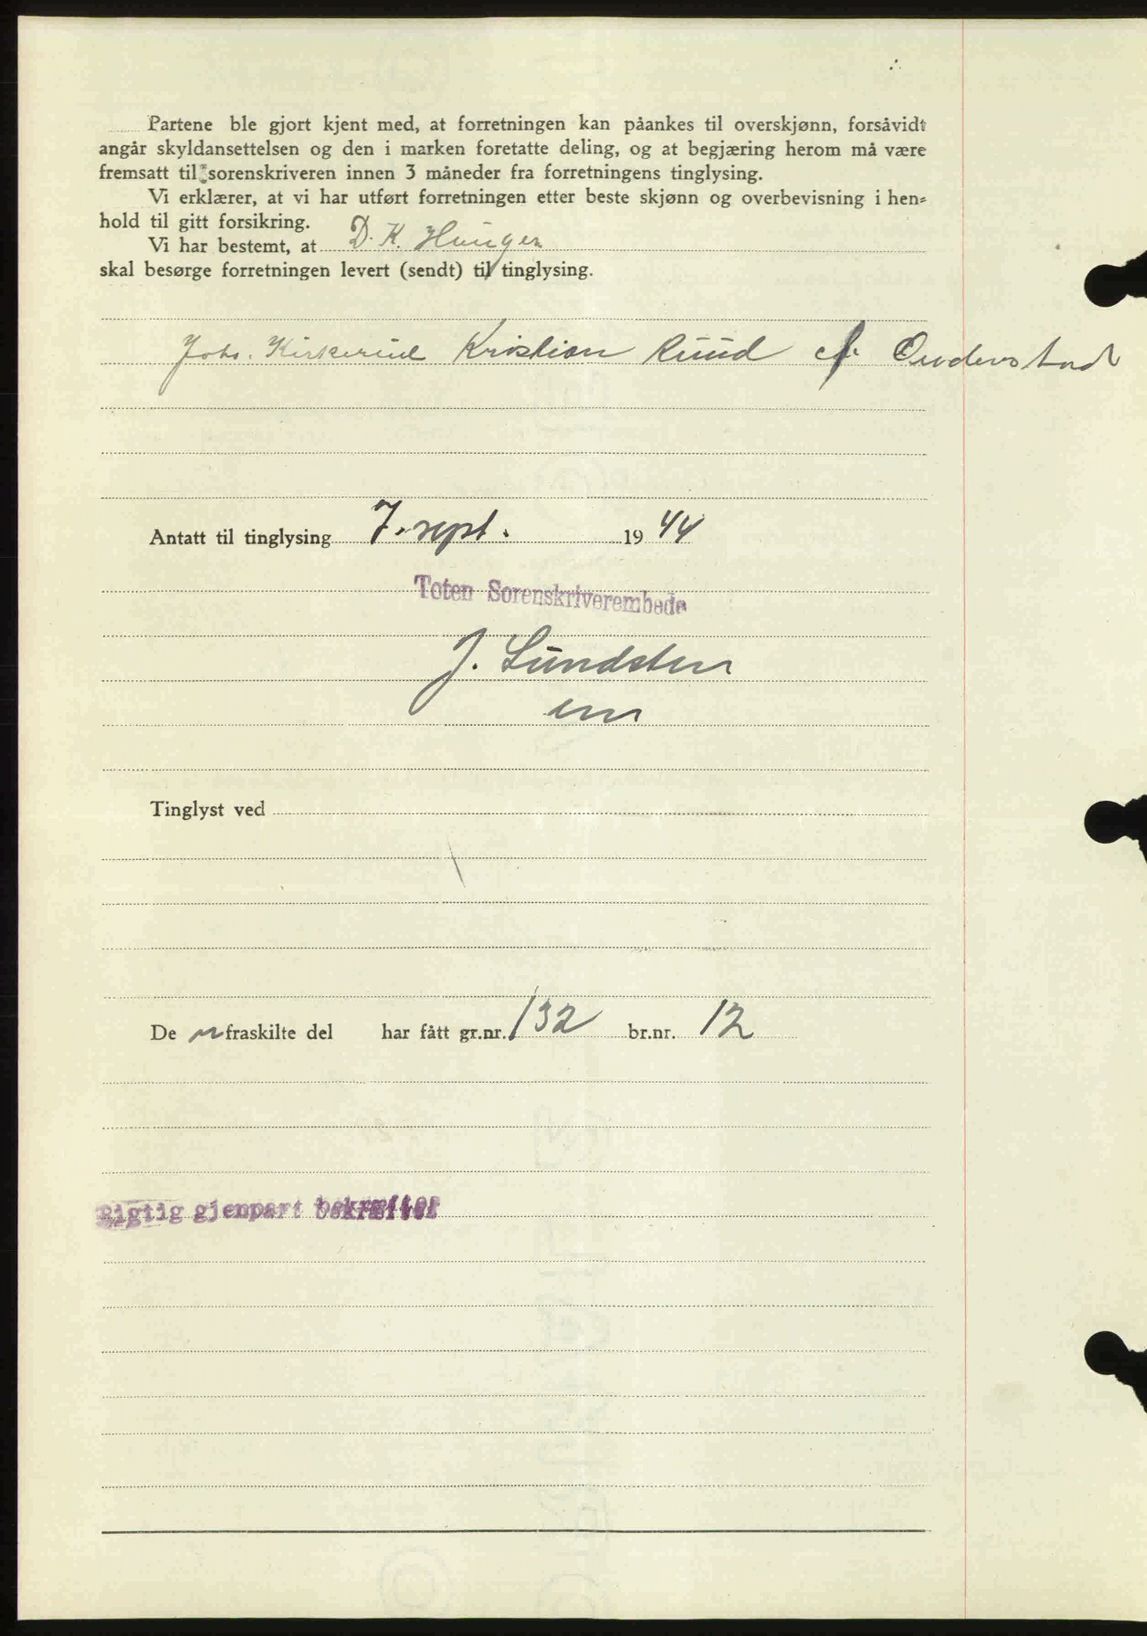 Partene ble gjort kjent med, at forretningen kan påankes til overskjønn, forsåvidt
angår skyldansettelsen og den i marken foretatte deling, og at begjæring herom må være
fremsatt til sorenskriveren innen 3 måneder fra forretningens tinglysing.
Vi erklærer, at vi har utført forretningen etter beste skjønn og overbevisning i hen-
hold til gitt forsikring.
Vi har bestemt, at D. K.
skal besørge forretningen levert (sendt) til tinglysing.
Johs. Kirkerud Kristian Ruud
Antatt til tinglysing 7. sept. 1944
Toten Sorenskriverembede
J. Sundsten
Tinglyst ved
De n fraskilte del har fått gr.nr. 132 br.nr. 12
Rigtig gjenpart bekræfter